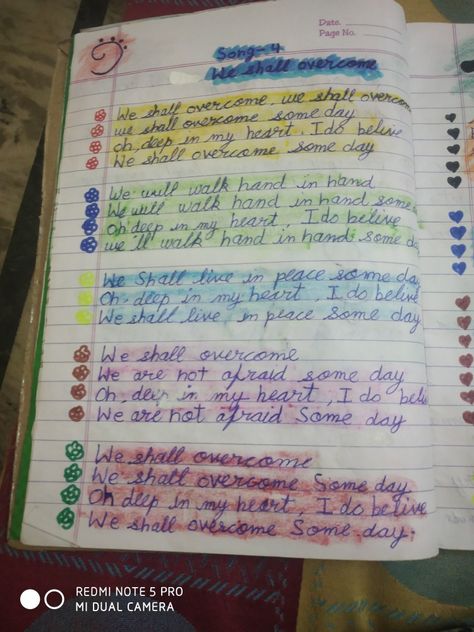 Date.
Page No.
Song-4
We shall overcome
We shall overcome, we shall overcome
we shall overcome some day
Oh, deep in my heart, I do belive
We shall overcome some day
We will walk hand in hand
We will walk hand in hand some
Oh deep in my heart, I do belive
we'll walk hand in hand some da
We Shall live in peace some day
Oh deep in my heart, I do belive
We shall live in peace some day
We shall overcome
We are not afraid some day
Oh, deep in my heart, I do beli
We are not afraid Some day
We shall overcome
We shall overcome Some day
Oh deep in my heart, I do belive
We shall overcome Some day.
REDMI NOTE 5 PRO
MI DUAL CAMERA